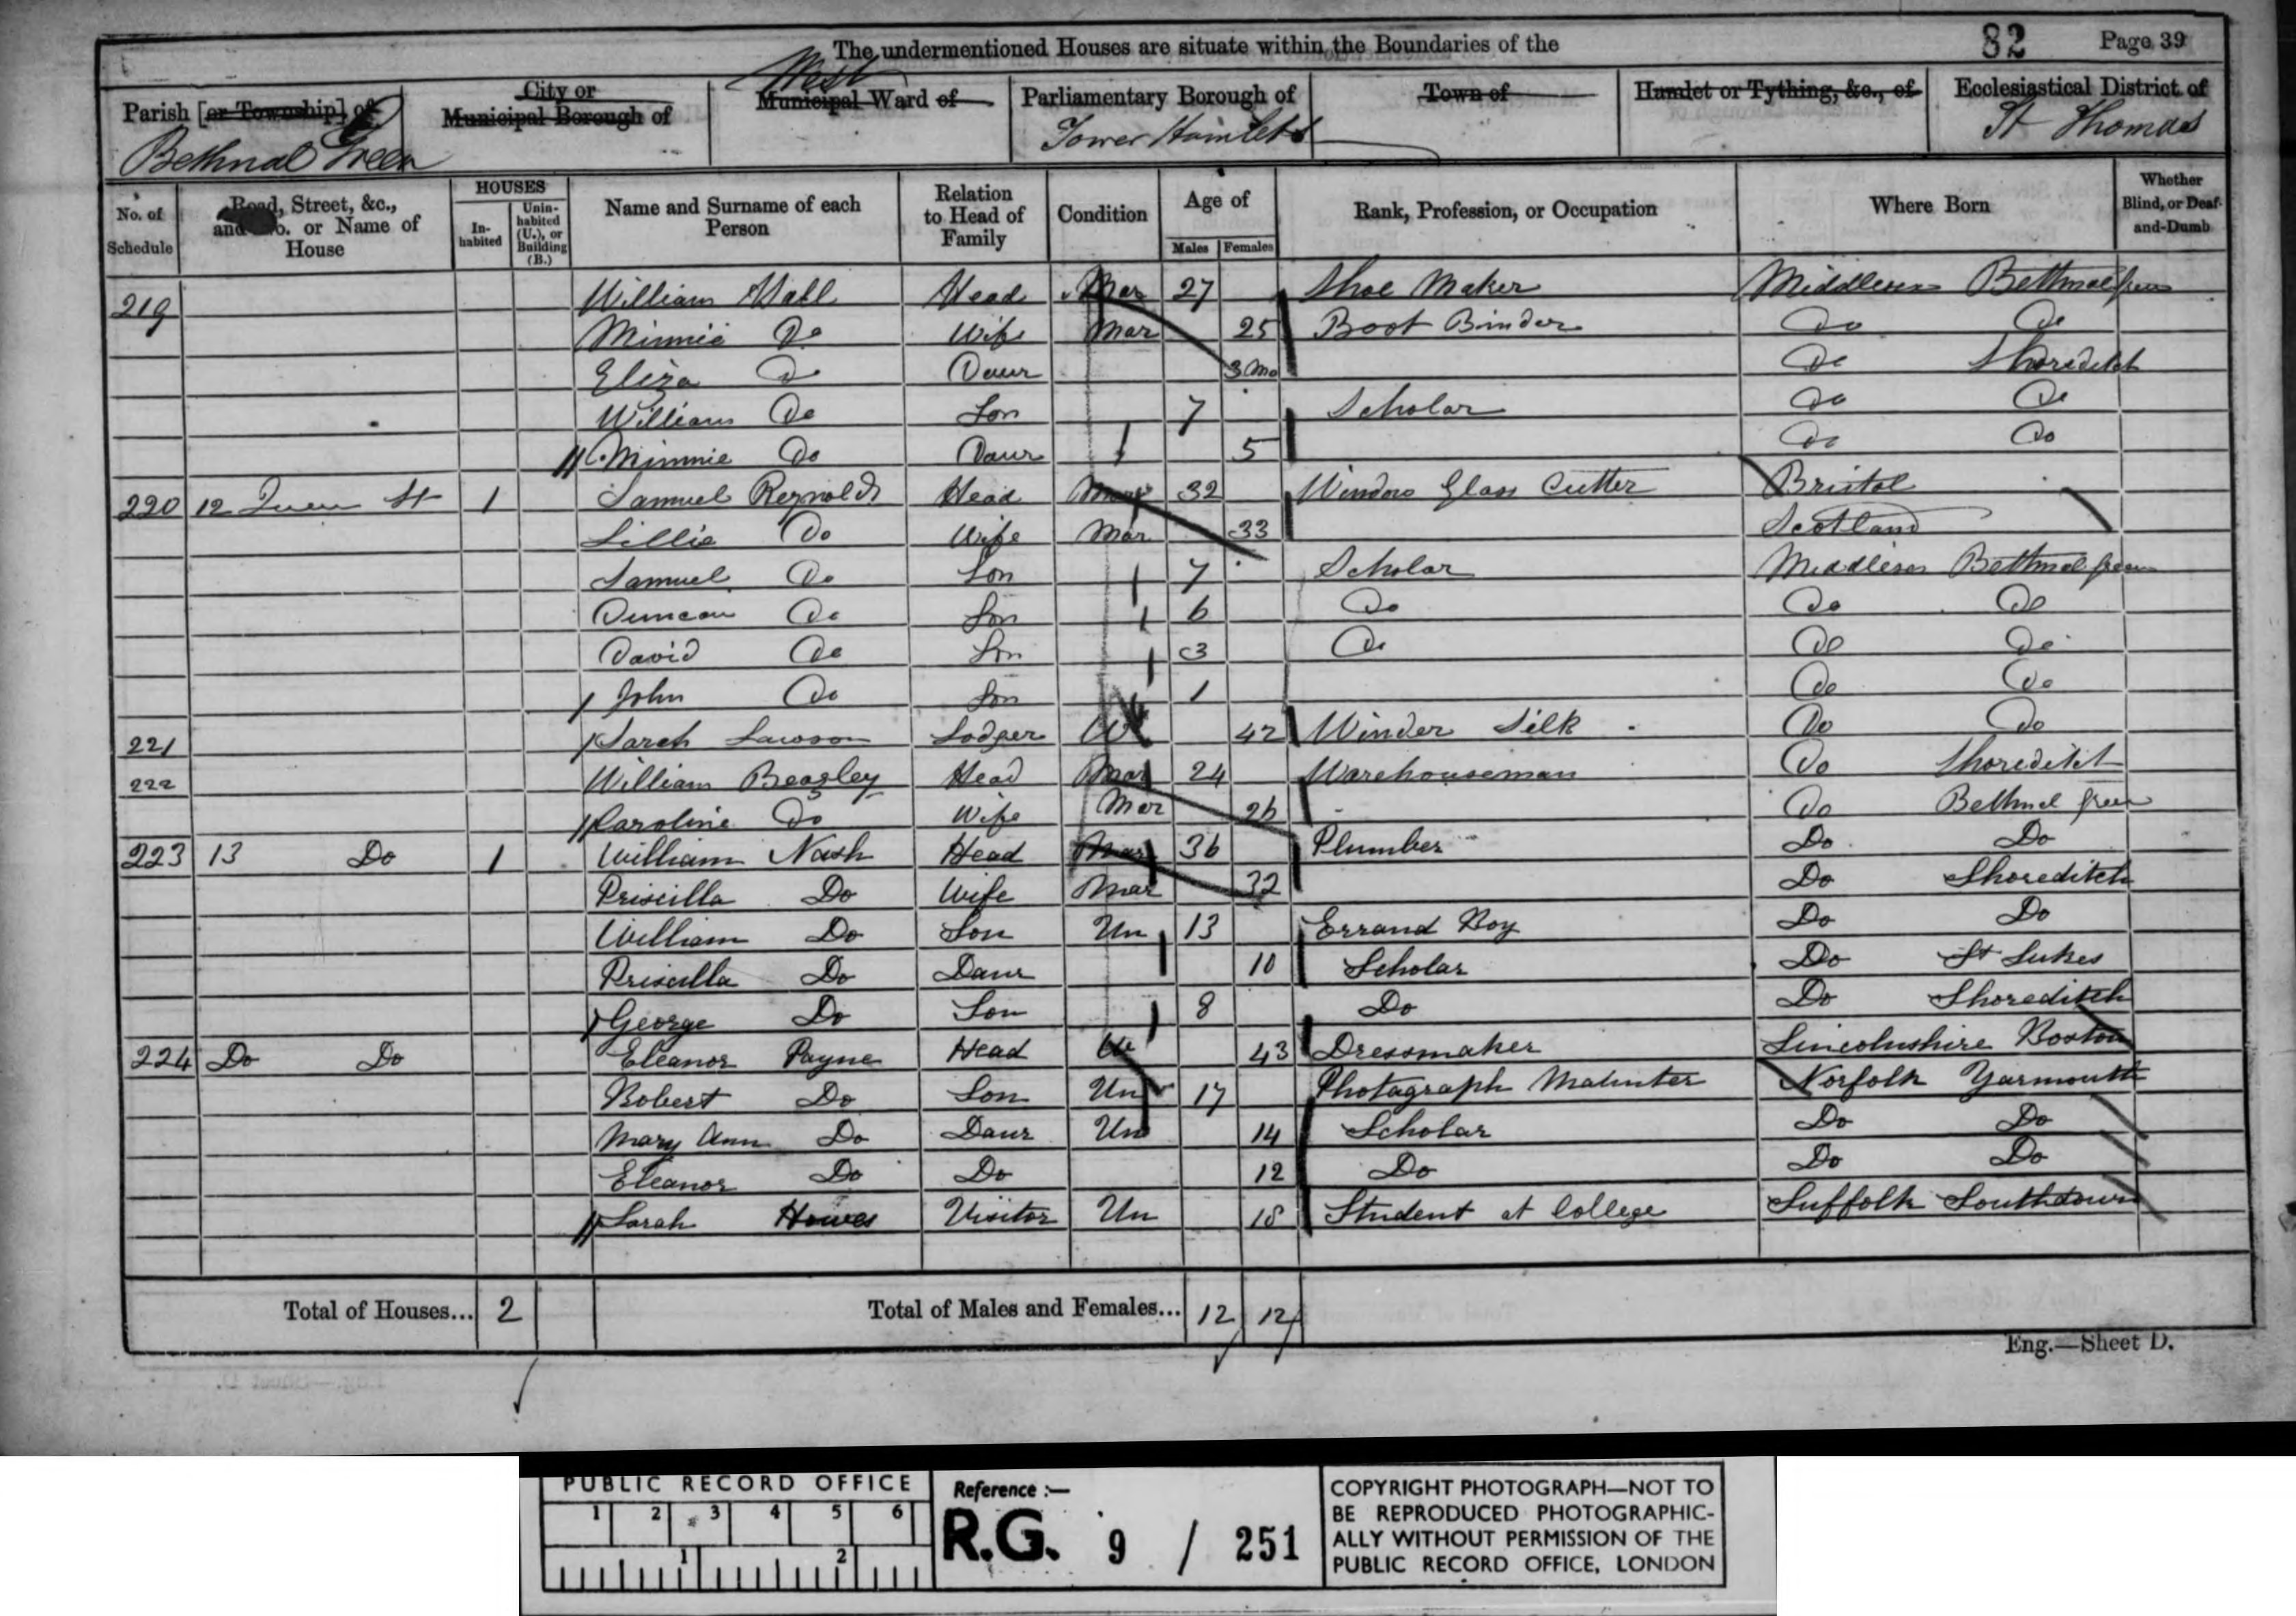 The undermentioned Houses are situate within the Boundaries of the
82 Page 39
Parish [or Township] of Bethnal Green
City or Municipal Borough of
West Municipal Ward of
Parliamentary Borough of Tower Hamlets
Town of
Hamlet or Tything, &c., of
Ecclesiastical District of St Thomas
No. of Schedule
Road, Street, &c., and No. or Name of House
HOUSES
In-habited
Unin-habited (U.), or Building (B.)
Name and Surname of each Person
Relation to Head of Family
Condition
Age of
Males Females
Rank, Profession, or Occupation
Where Born
Whether Blind, or Deaf-and-Dumb
219 William Hall Head Mar 27 Shoe Maker Middlesex Bethnal green
Minnie Do Wife Mar 25 Boot Binder Do Do
Eliza Do Daur 3 Mo Do Shoreditch
William Do Son 7 Scholar Do Do
Minnie Do Daur 5 Do Do
220 12 St 1 Samuel Reynolds Head Mar 32 Window Glass Cutter Bristol
Lillie Do Wife Mar 33 Scotland
Samuel Do Son 7 Scholar Middlesex Bethnal green
Duncan Do Son 6 Do Do Do
David Do Son 3 Do Do Do
John Do Son 1 Do Do
221 Sarah Lawson Lodger W 42 Winder Silk Do Do
222 William Beagley Head Mar 24 Warehouseman Do Shoreditch
Caroline Do Wife Mar 26 Do Bethnal green
223 13 Do 1 William Nash Head Mar 36 Plumber Do Do
Priscilla Do Wife Mar 32 Do Shoreditch
William Do Son Un 13 Errand Boy Do Do
Priscilla Do Daur 10 Scholar Do St Lukes
George Do Son 8 Do Do Shoreditch
224 Do Do Eleanor Payne Head W 43 Dressmaker Lincolnshire Boston
Robert Do Son Un 17 Photagraph Norfolk Yarmouth
Mary Ann Do Daur Un 14 Scholar Do Do
Eleanor Do Do 12 Do Do Do
Sarah Howes Visitor Un 18 Student at College Suffolk Southtown
Total of Houses... 2
Total of Males and Females... 12 12
Eng.—Sheet D.
PUBLIC RECORD OFFICE
1 2 3 4 5 6
1 2
Reference :—
R.G. 9 / 251
COPYRIGHT PHOTOGRAPH—NOT TO
BE REPRODUCED PHOTOGRAPHIC-
ALLY WITHOUT PERMISSION OF THE
PUBLIC RECORD OFFICE, LONDON